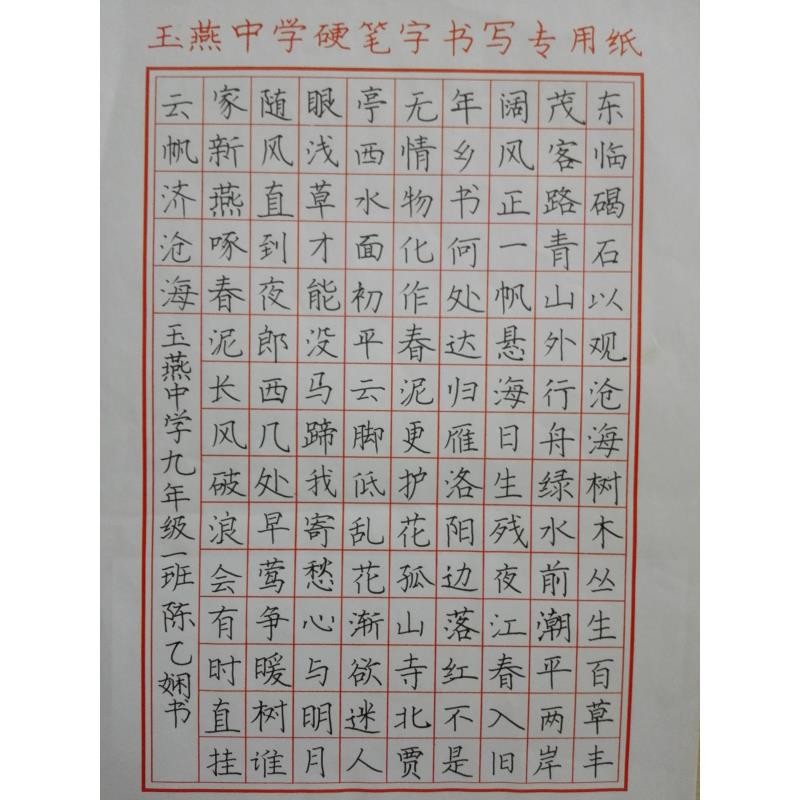 玉燕中学硬笔字书写专用纸
东临碣石以观沧海树木丛生百草丰
茂客路青山外行舟绿水前潮平两岸
阔风正一帆悬海日生残夜江春入旧
年乡书何处达归雁洛阳边落红不是
无情物化作春泥更护花孤山寺北贾
亭西水面初平云脚低乱花渐欲迷人
眼浅草才能没马蹄我寄愁心与明月
随风直到夜郎西几处早莺争暖树谁
家新燕啄春泥长风破浪会有时直挂
云帆济沧海
玉燕中学九年级一班陈乙娴书